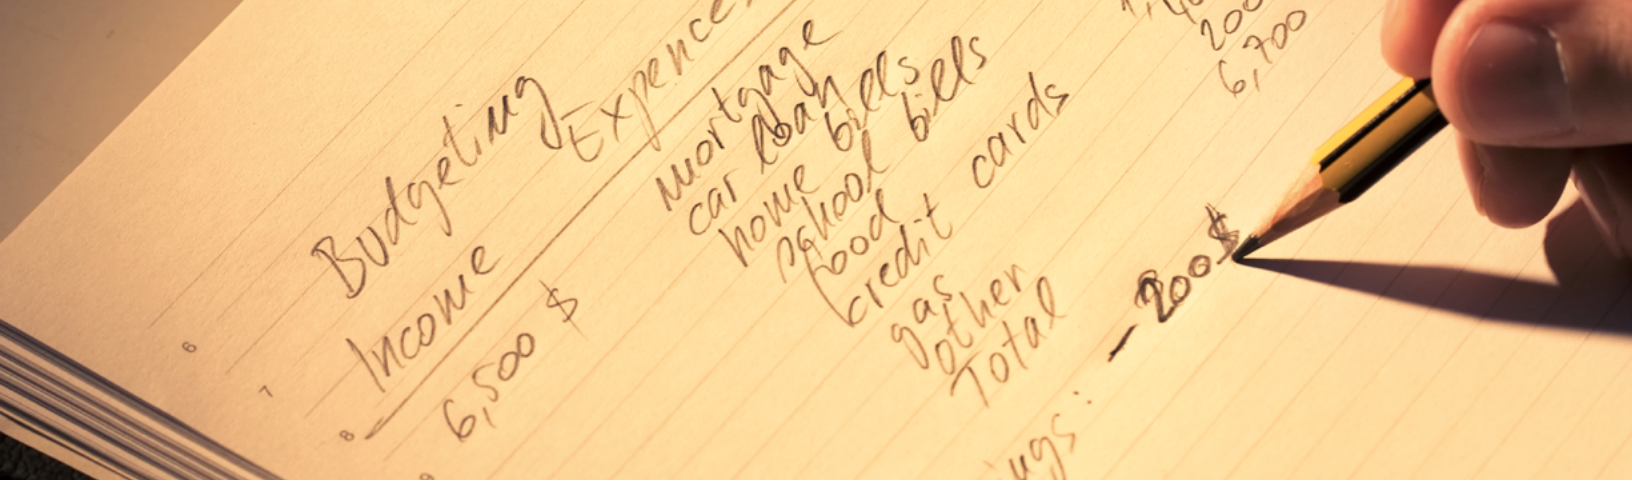 Budgeting
Income Expences
6,500 $
mortgage
car loan
home bills
school bills
food
credit cards
gas
other 200
Total 6,700
- 200$
6
7
8